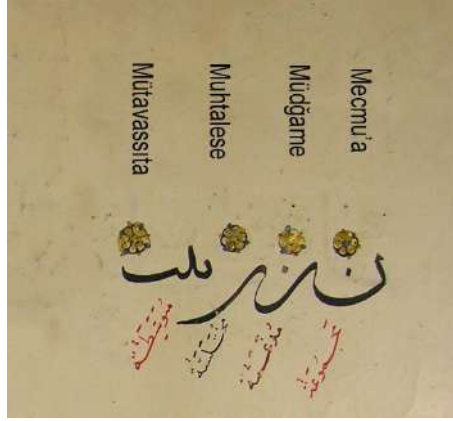 Mecmu'a
Müdğame
Muhtalese
Mütavassıta
مجموعة
مدغمة
مختلسة
متوسطة